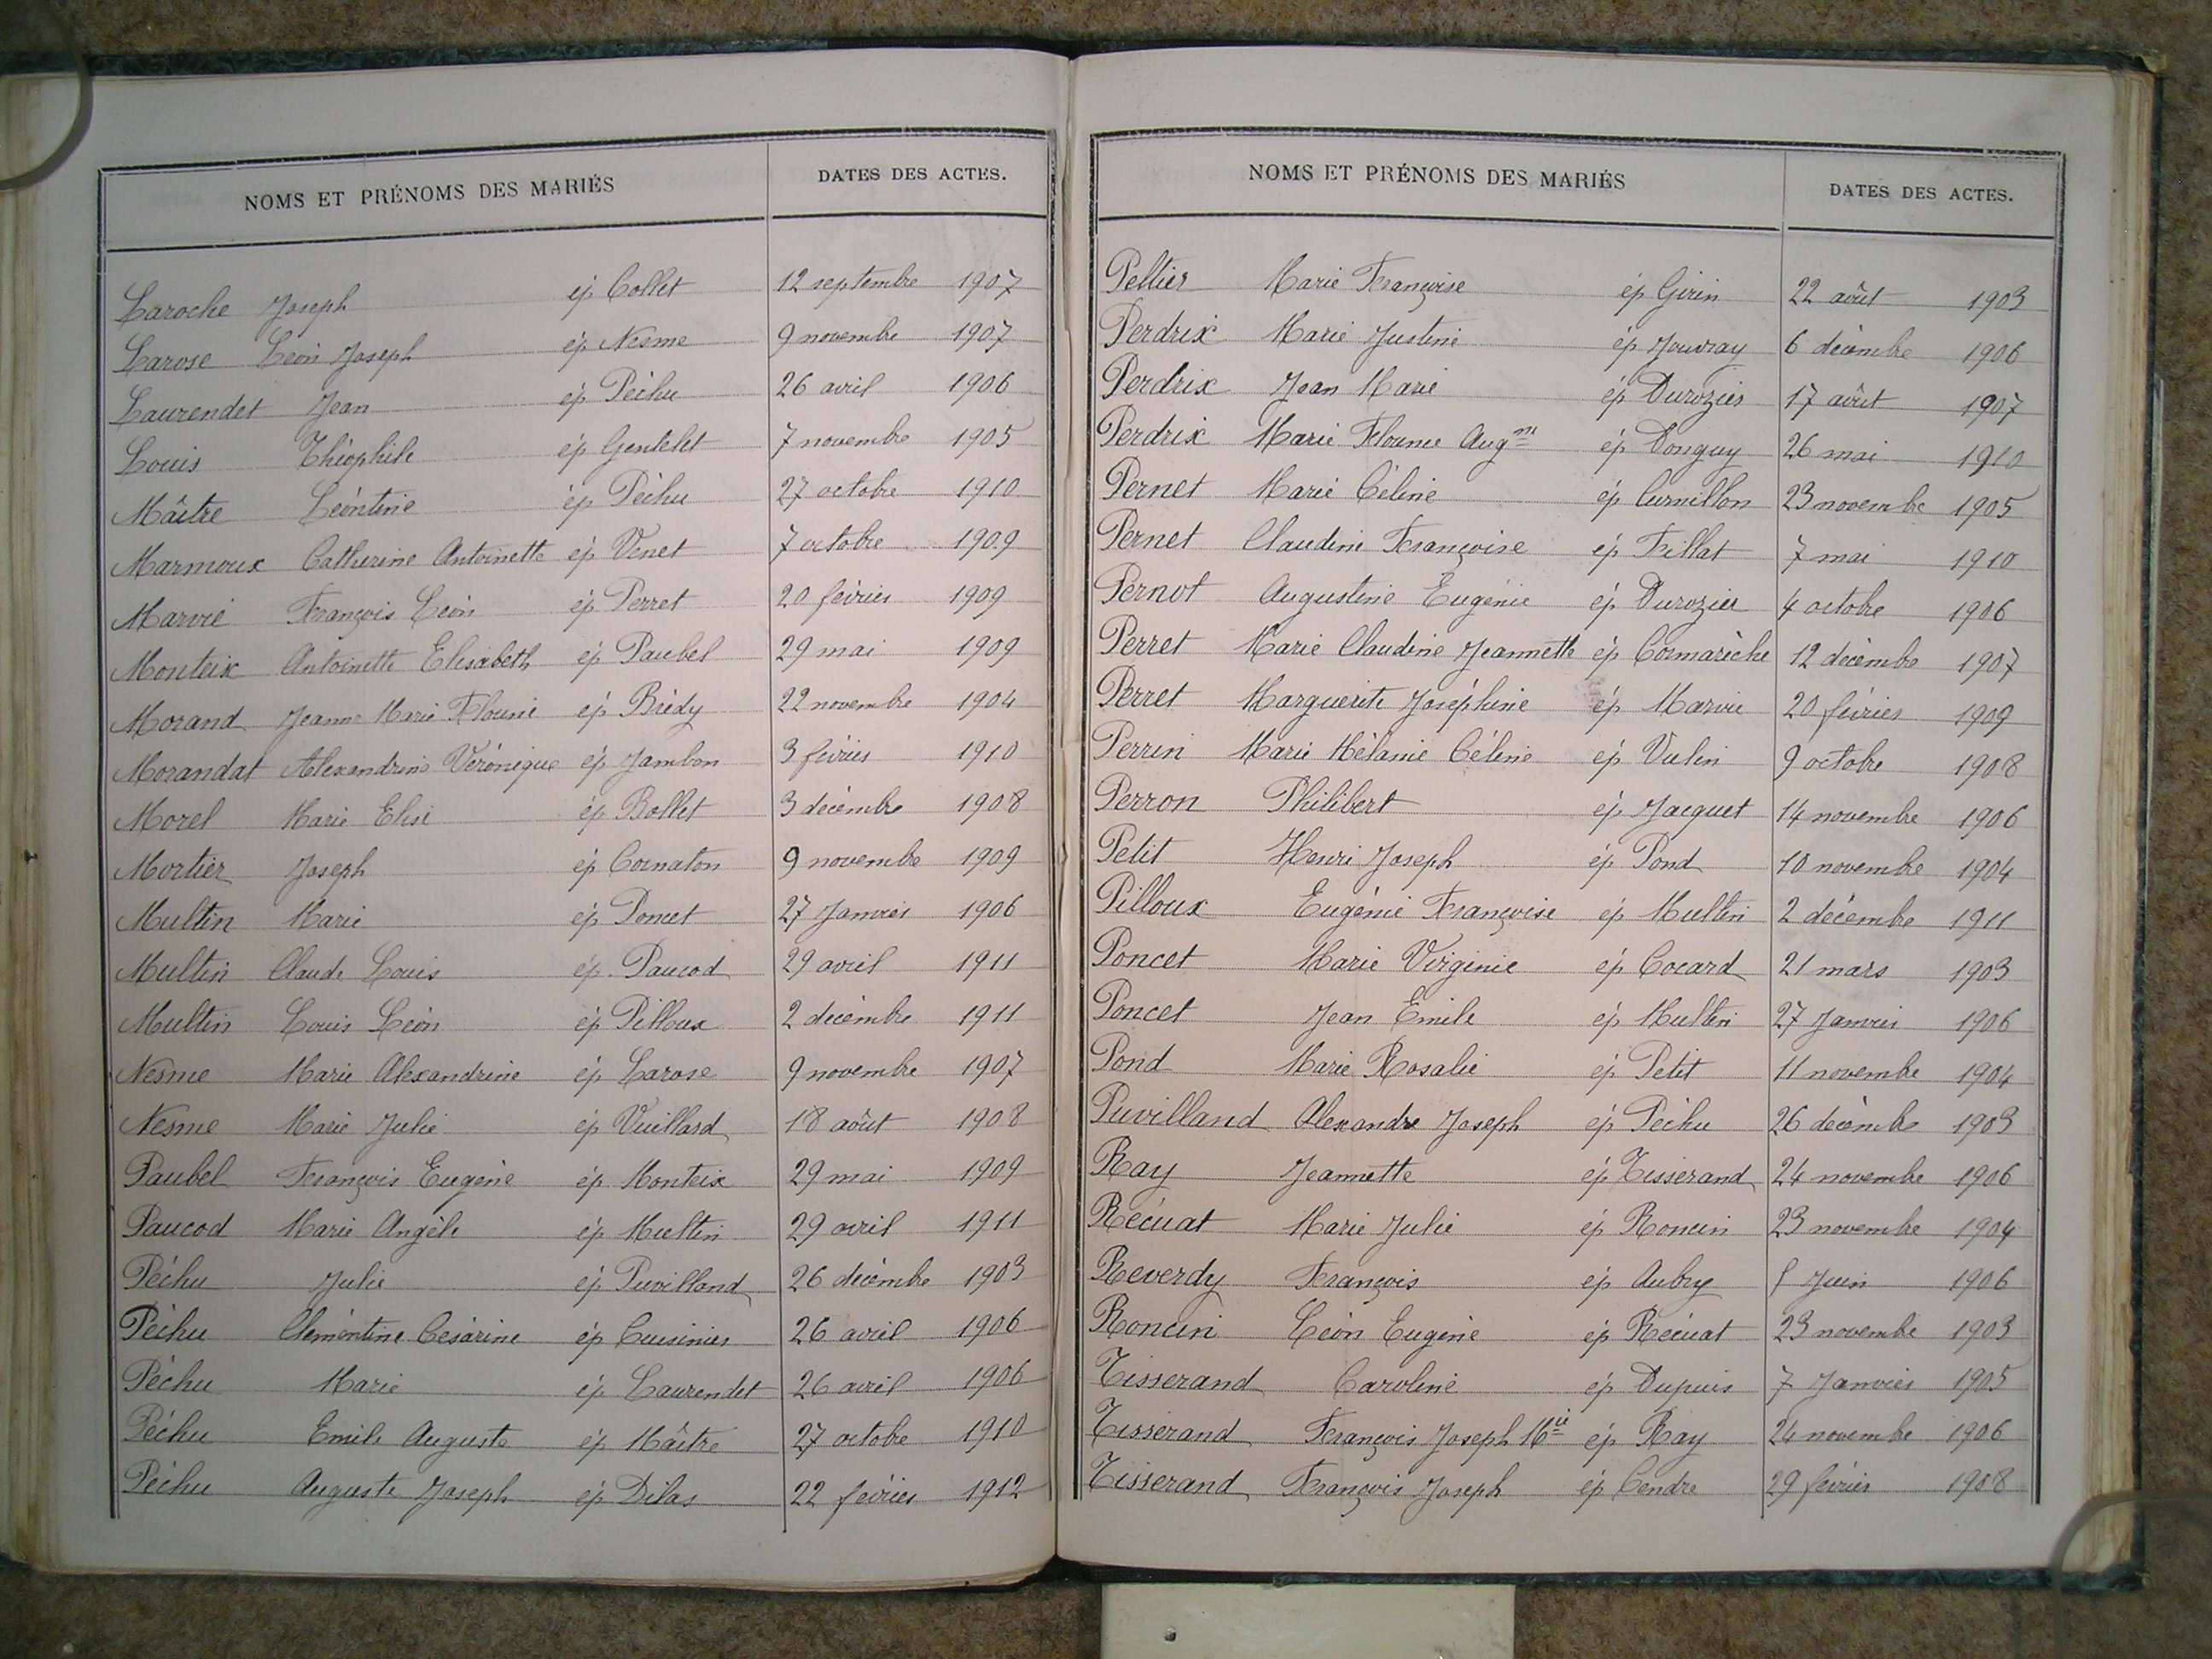 NOMS ET PRÉNOMS DES MARIÉS DATES DES ACTES.
Laroche Joseph ép Collet 12 septembre 1907
Larose Léon Joseph ép Nesme 9 novembre 1907
Laurendet Jean ép Péchu 26 avril 1906
Louis Théophile ép Gentelet 7 novembre 1905
Maître Léontine ép Péchu 27 octobre 1910
Marmoux Catherine Antoinette ép Venet 7 octobre 1909
Marvié François Léon ép Perret 20 février 1909
Monteix Antoinette Elisabeth ép Paubel 29 mai 1909
Morand Jeanne Marie Flourie ép Brédy 22 novembre 1904
Morandat Alexandrine Véronique ép Jambon 3 février 1910
Morel Marie Elise ép Bollet 3 décembre 1908
Mortier Joseph ép Cornaton 9 novembre 1909
Multin Marie ép Poncet 27 Janvier 1906
Multin Claude Louis ép Paucod 29 avril 1911
Multin Louis Léon ép Pilloux 2 décembre 1911
Nesme Marie Alexandrine ép Larose 9 novembre 1907
Nesme Marie Julie ép Vuillard 18 août 1908
Paubel François Eugène ép Monteix 29 mai 1909
Paucod Marie Angèle ép Multin 29 avril 1911
Péchu Julie ép Puvilland 26 décembre 1903
Péchu Clémentine Césarine ép Cuisinier 26 avril 1906
Péchu Marie ép Laurendet 26 avril 1906
Péchu Emile Auguste ép Maître 27 octobre 1910
Péchu Auguste Joseph ép Dilas 22 février 1912
NOMS ET PRÉNOMS DES MARIÉS DATES DES ACTES.
Peltier Marie Françoise ép Girin 22 août 1903
Perdrix Marie Justine ép Jouvray 6 décembre 1906
Perdrix Jean Marie ép Durozier 17 août 1907
Perdrix Marie Flourie Aug ép Donguy 26 mai 1910
Pernet Marie Céline ép Curnillon 23 novembre 1905
Pernet Claudine Françoise ép Fillat 7 mai 1910
Pernot Augustine Eugénie ép Durozier 4 octobre 1906
Perret Marie Claudine Jeannette ép Cormarèche 12 décembre 1907
Perret Marguerite Joséphine ép Marvié 20 février 1909
Perrin Marie Mélanie Céline ép Vulin 9 octobre 1908
Perron Philibert ép Jacquet 14 novembre 1906
Petit Henri Joseph ép Pond 10 novembre 1904
Pilloux Eugénie Françoise ép Multin 2 décembre 1911
Poncet Marie Virginie ép Cocard 21 mars 1903
Poncet Jean Emile ép Multin 27 Janvier 1906
Pond Marie Rosalie ép Petit 11 novembre 1904
Puvilland Alexandre Joseph ép Péchu 26 décembre 1903
Ray Jeannette ép Tisserand 24 novembre 1906
Récuat Marie Julie ép Roncin 23 novembre 1904
Reverdy François ép Aubry Juin 1906
Roncin Léon Eugène ép Récuat 23 novembre 1903
Tisserand Caroline ép Dupuis 7 Janvier 1905
Tisserand François Joseph Mie ép Ray 24 novembre 1906
Tisserand François Joseph ép Cendre 29 février 1908